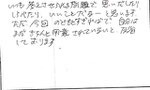 いも答えさせられる所題で思いだしたり
しらべたり、いいことだなーと思います。
ただ今回のどたどたさわぎで自分は
まだきちんと用意されていないと反省
しております。